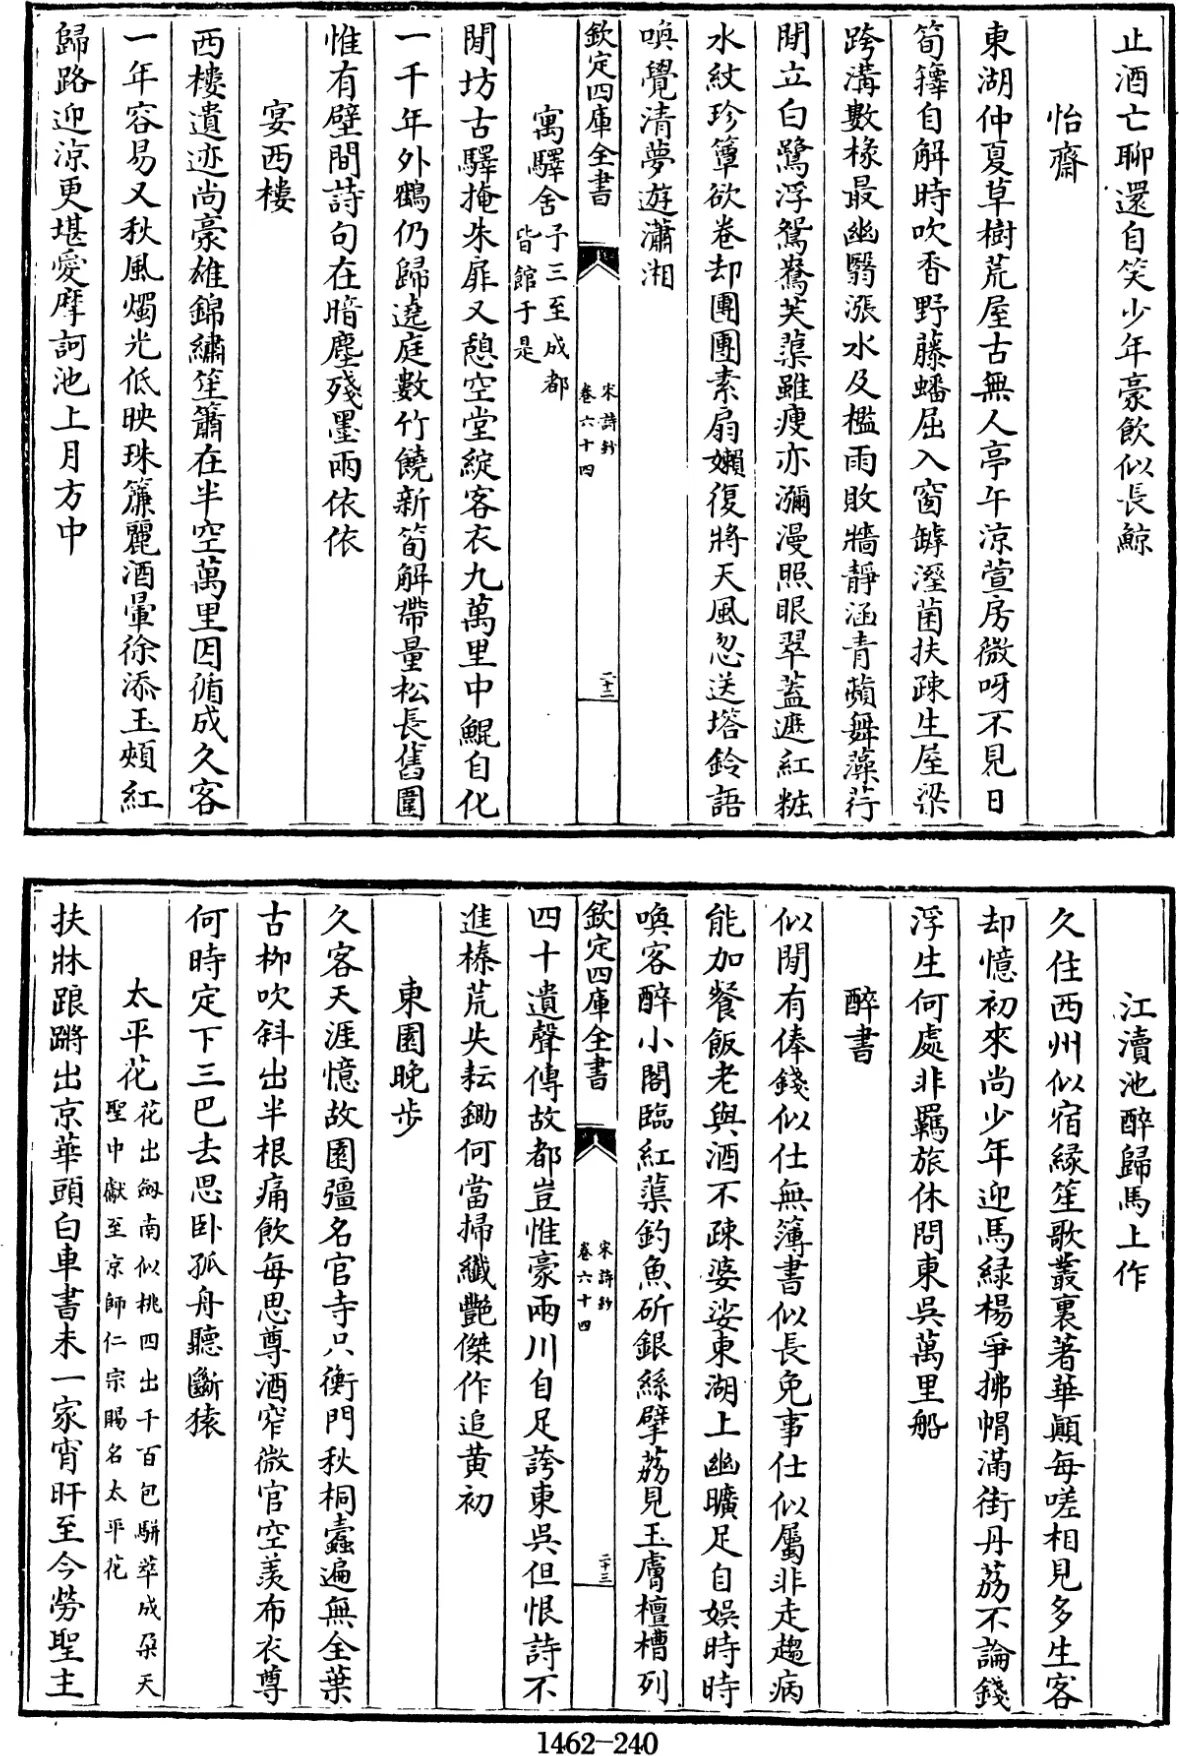 止酒亡聊還自笑少年豪飲似長鯨
怡齋
東湖仲夏草樹荒屋古無人亭午涼萱房微呀不見日
筍籜自解時吹香野藤蟠屈入窗罅溼菌扶疎生屋梁
跨溝數椽最幽翳漲水及檻雨敗牆靜涵青蘋舞藻荇
閒立白鷺浮鴛鴦芙蕖雖瘦亦瀰漫照眼翠蓋遮紅粧
水紋珍簟欲卷却團團素扇嬾復將天風忽送塔鈴語
喚覺清夢遊瀟湘
欽定四庫全書
宋詩鈔
卷六十四
二十二
寓驛舍
予三至成都
皆館于是
閒坊古驛掩朱扉又憩空堂綻客衣九萬里中鯤自化
一千年外鶴仍歸遶庭數竹饒新筍解帶量松長舊圍
惟有壁間詩句在暗塵殘墨兩依依
宴西樓
西樓遺迹尚豪雄錦繡笙簫在半空萬里因循成久客
一年容易又秋風燭光低映珠簾麗酒暈徐添玉頰紅
歸路迎涼更堪愛摩訶池上月方中
江瀆池醉歸馬上作
久住西州似宿緣笙歌叢裏著華顛每嗟相見多生客
却憶初來尚少年迎馬綠楊爭拂帽滿街丹荔不論錢
浮生何處非羈旅休問東吳萬里船
醉書
似閒有俸錢似仕無簿書似長免事仕似屬非走趨病
能加餐飯老與酒不疎婆娑東湖上幽曠足自娛時時
喚客醉小閣臨紅蕖釣魚斫銀絲擘荔見玉膚檀槽列
欽定四庫全書
宋詩鈔
卷六十四
二十三
四十遺聲傳故都豈惟豪兩川自足誇東吳但恨詩不
進榛荒失耘鋤何當掃纖艷傑作追黃初
東園晚步
久客天涯憶故園彊名官寺只衡門秋桐蠹遍無全葉
古柳吹斜出半根痛飲每思尊酒窄微官空羨布衣尊
何時定下三巴去思卧孤舟聽斷猿
太平花
花出劒南似桃四出千百包駢萃成朶天
聖中獻至京師仁宗賜名太平花
扶牀踉蹡出京華頭白車書未一家宵旰至今勞聖主
1462-240